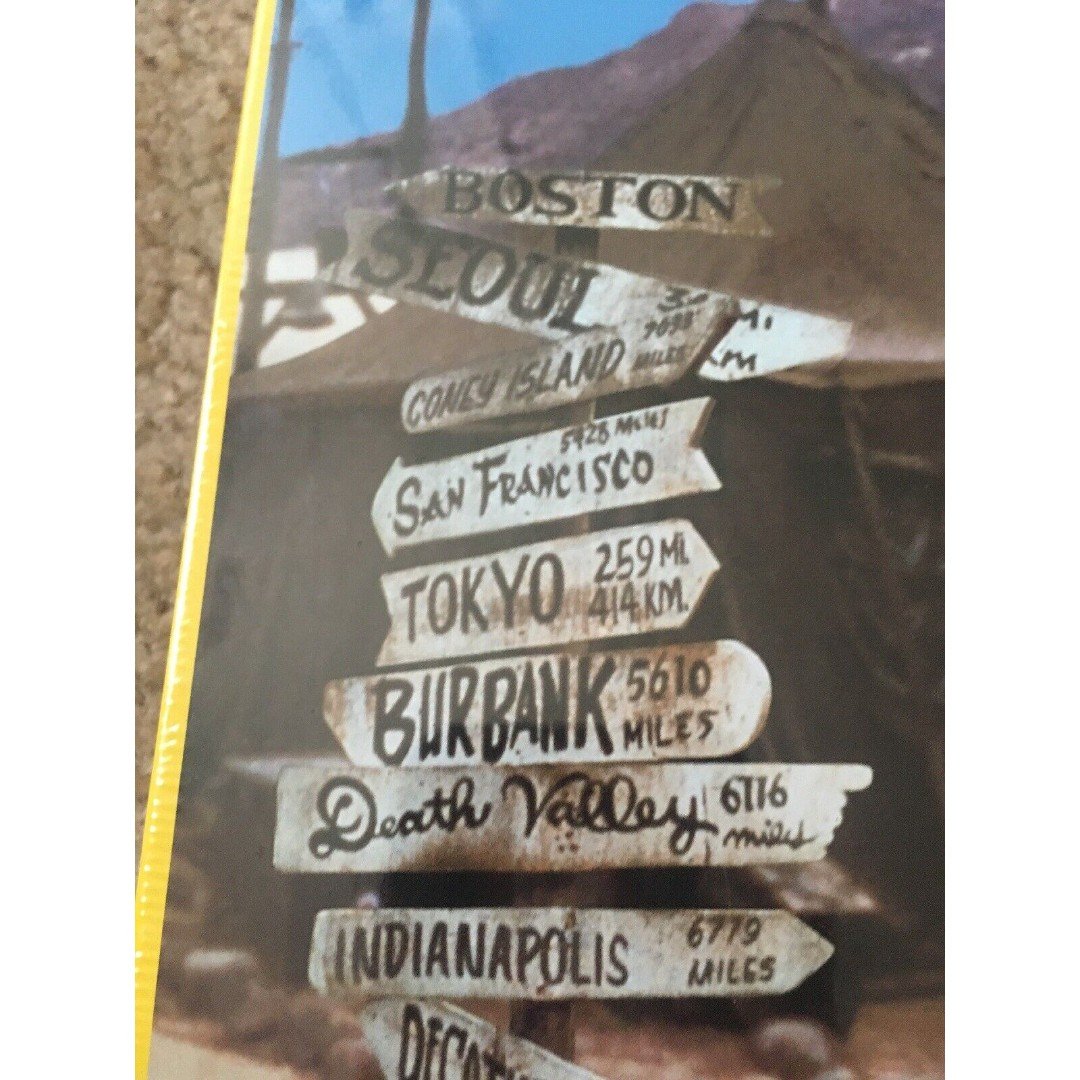 BOSTON
SEOUL
MI.
KM
CONEY ISLAND
MILES
5428 MILES
SAN FRANCISCO
TOKYO
259 MI.
414 KM.
BURBANK
5610
MILES
Death Valley
6116
miles
INDIANAPOLIS
6779
MILES